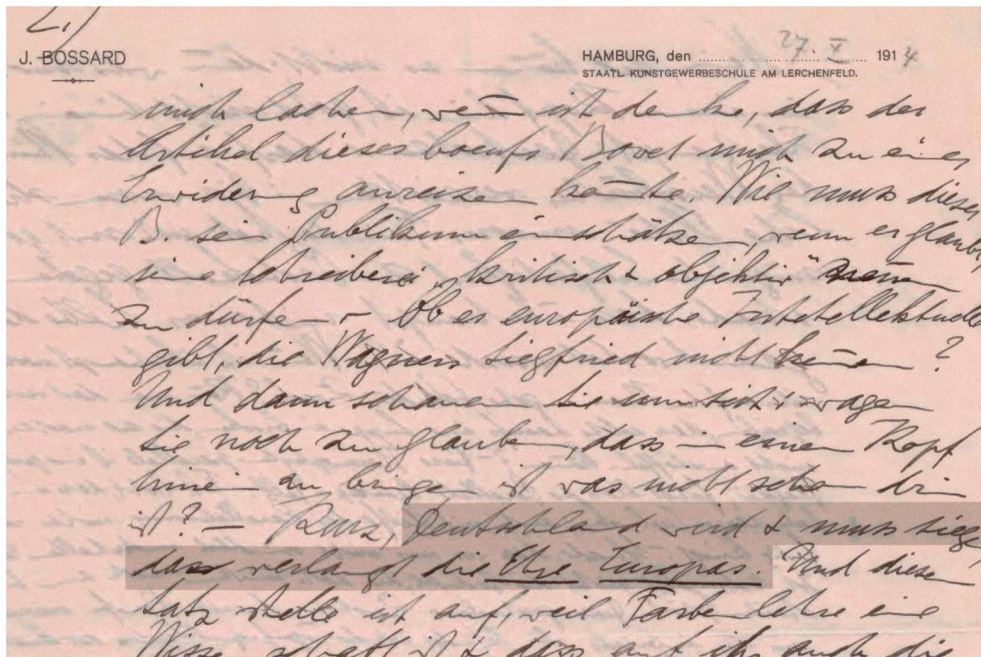 2.)
J. BOSSARD
HAMBURG, den 27. X. 1914
STAATL. KUNSTGEWERBESCHULE AM LERCHENFELD.
mich lachen, wenn ich denke, dass der
Artikel dieses boeufs Bovet mich zu einer
Erwiderung anreizen könnte. Wie muss dieser
B. sein Publikum einschätzen, wenn er glaubt,
seine Schreiberei „kritisch & objektiv" nennen
zu dürfen – Ob es europäische Intellektuelle
gibt, die Wagners Siegfried nicht kennen?
Und dann schauen Sie um sich & wagen
Sie noch zu glauben, dass in einen Kopf
hinein zu bringen ist was nicht schon drin
ist? – Kurz, Deutschland wird & muss siegen,
das verlangt die Ehre Europas. Und diesen
Satz stelle ich auf, weil Farbenlehre eine
Wissenschaft ist & dass auf ihr auch die